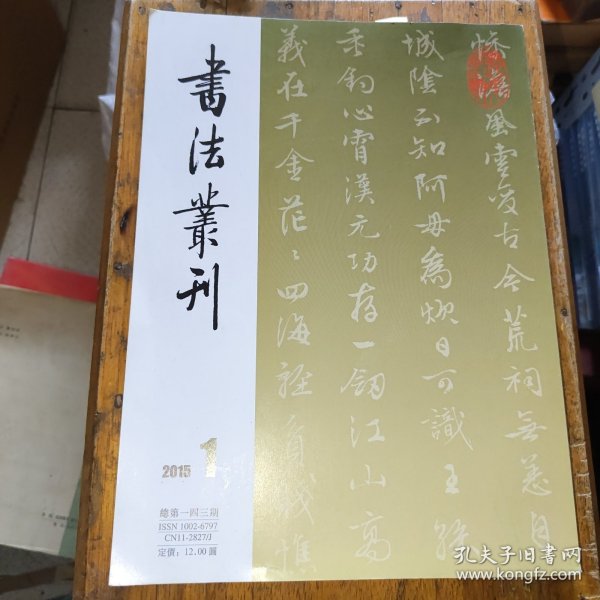 書法叢刊
慘澹風雲變古今荒祠無恙月
城陰不知阿母為炊日可識王孫
垂釣心霄漢元功存一劍江山高
義在千金茫〻四海
2015 1
總第一四三期
ISSN 1002-6797
CN11-2827/J
定價：12.00圓
孔夫子旧书网
www.kongfz.com